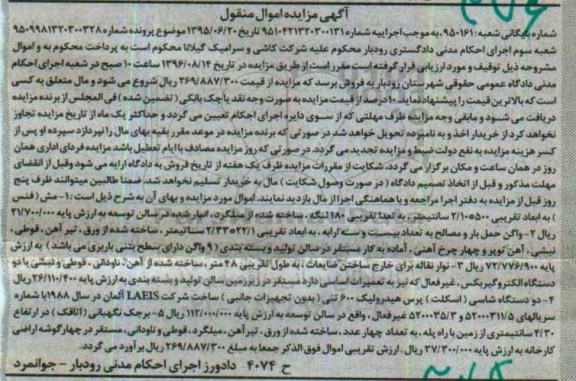 ۲۷۶
آگهی مزایده اموال منقول
شماره بایگانی شعبه: ۹۵۰۱۶۱ به موجب اجراییه شماره ۹۵۱۰۴۲۱۳۲۰۳۰۰۱۳۱ تاریخ ۱۳۹۵/۰۶/۲۰ موضوع پرونده شماره ۹۵۰۹۹۸۱۳۲۰۳۰۰۳۲۸
شعبه سوم اجرای احکام مدنی دادگستری رودبار محکوم علیه شرکت کاشی و سرامیک گیلانا محکوم است به پرداخت محکوم به و اموال
مشروحه ذیل توقیف و مورد ارزیابی قرار گرفته است مقرر است از طریق مزایده در تاریخ ۱۳۹۶/۰۸/۱۴ ساعت ۱۰ صبح در شعبه اجرای احکام
مدنی دادگاه عمومی حقوقی شهرستان رودبار به فروش برسد که مزایده از قیمت ۲۶۹/۸۸۷/۳۰۰ ریال شروع می شود و مال متعلق به کسی
است که بالاترین قیمت را پیشنهاد نماید ۱۰ درصد از قیمت مزایده به صورت وجه نقد یا چک بانکی (تضمین شده) فی المجلس از برنده مزایده
دریافت می شود و مابقی وجه مزایده ظرف مهلتی که از سوی دایره اجرای احکام تعیین می گردد و حداکثر یک ماه از تاریخ مزایده تجاوز
نخواهد کرد از خریدار اخذ و به نامبرده تحویل خواهد شد در صورتی که برنده مزایده در موعد مقرر بقیه بهای مال را نپردازد سپرده او پس از
کسر هزینه مزایده به نفع دولت ضبط و مزایده تجدید می گردد. در صورتی که روز مزایده مصادف با ایام تعطیل باشد مزایده فردای اداری همان
روز در همان ساعت و مکان برگزار می گردد، شکایت از مقررات مزایده ظرف یک هفته از تاریخ فروش به دادگاه ارایه می شود وقبل از انقضای
مهلت مذکور و قبل از اتخاذ تصمیم دادگاه (در صورت وصول شکایت) مال به خریدار تسلیم نخواهد شد. ضمنا طالبین میتوانند ظرف پنج
روز قبل از مزایده به دفتر اجرا مراجعه و با هماهنگی اجرا از مال بازدید نمایند. اموال مورد مزایده و بهای آن به شرح ذیل است: ۱- مش (فنس
) به ابعاد تقریبی ۵۰۰*۲/۱۰ سانتیمتر، به تعداد تقریبی ۱۸۰ لنگه، ساخته شده از میلگرد، انبار شده در سالن توسعه به ارزش پایه ۲۱/۷۰۰/۰۰۰
ریال ۲- واگن حمل بار و مصالح به تعداد بیست و سته ارایه، به ابعاد تقریبی ۱/۲۲*۲/۳۳ سانتیمتر، ساخته شده از ورق، تیر آهن، قوطی،
نبشی، آهن توپر و چهار چرخ آهنی، آماده به کار مستقر در سالن تولید و بسته بندی (۹ واگن دارای سطح بتنی باربری می باشد) به ارزش
پایه ۷۲/۷۷۶/۹۰۰ ریال ۳- نوار نقاله برای خارج ساختن ضایعات، به طول تقریبی ۴۸ متر، ساخته شده از آهن، ناودانی، قوطی و نبشی با دو
دستگاه الکتروگیربکس، غیرفعال که نیاز به تعمیرات اساسی دارد مستقر در زیرزمین سالن تولید و بسته بندی به ارزش پایه ۲۶/۱۱۰/۴۰۰ ریال
۴- دو دستگاه شاسی (اسکلت) پرس هیدرولیک ۶۰۰ تنی (بدون تجهیزات جانبی) ساخت شرکت LAEIS آلمان در سال ۱۹۸۸ با شماره
سریالهای ۵۲۰۰۳۱۱/۵ و ۵۲۰۰۳۵/۳ غیرفعال، واقع در سالن توسعه به ارزش پایه ۱۱۲/۰۰۰/۰۰۰ ریال ۵- برجک نگهبانی (اتاقک) در ارتفاع
۴/۳۰ سانتیمتری از زمین با راه پله، به تعداد چهار عدد، ساخته شده از ورق، تیر آهن، میلگرد، قوطی و ناودانی، مستقر در چهار گوشه اراضی
کارخانه به ارزش پایه ۳۷/۳۰۰/۰۰۰ ریال. ارزش تقریبی اموال فوق الذکر جمعا به مبلغ ۲۶۹/۸۸۷/۳۰۰ ریال برآورد می گردد.
ح ۴۰۷۴ دادورز اجرای احکام مدنی رودبار - جوانمرد